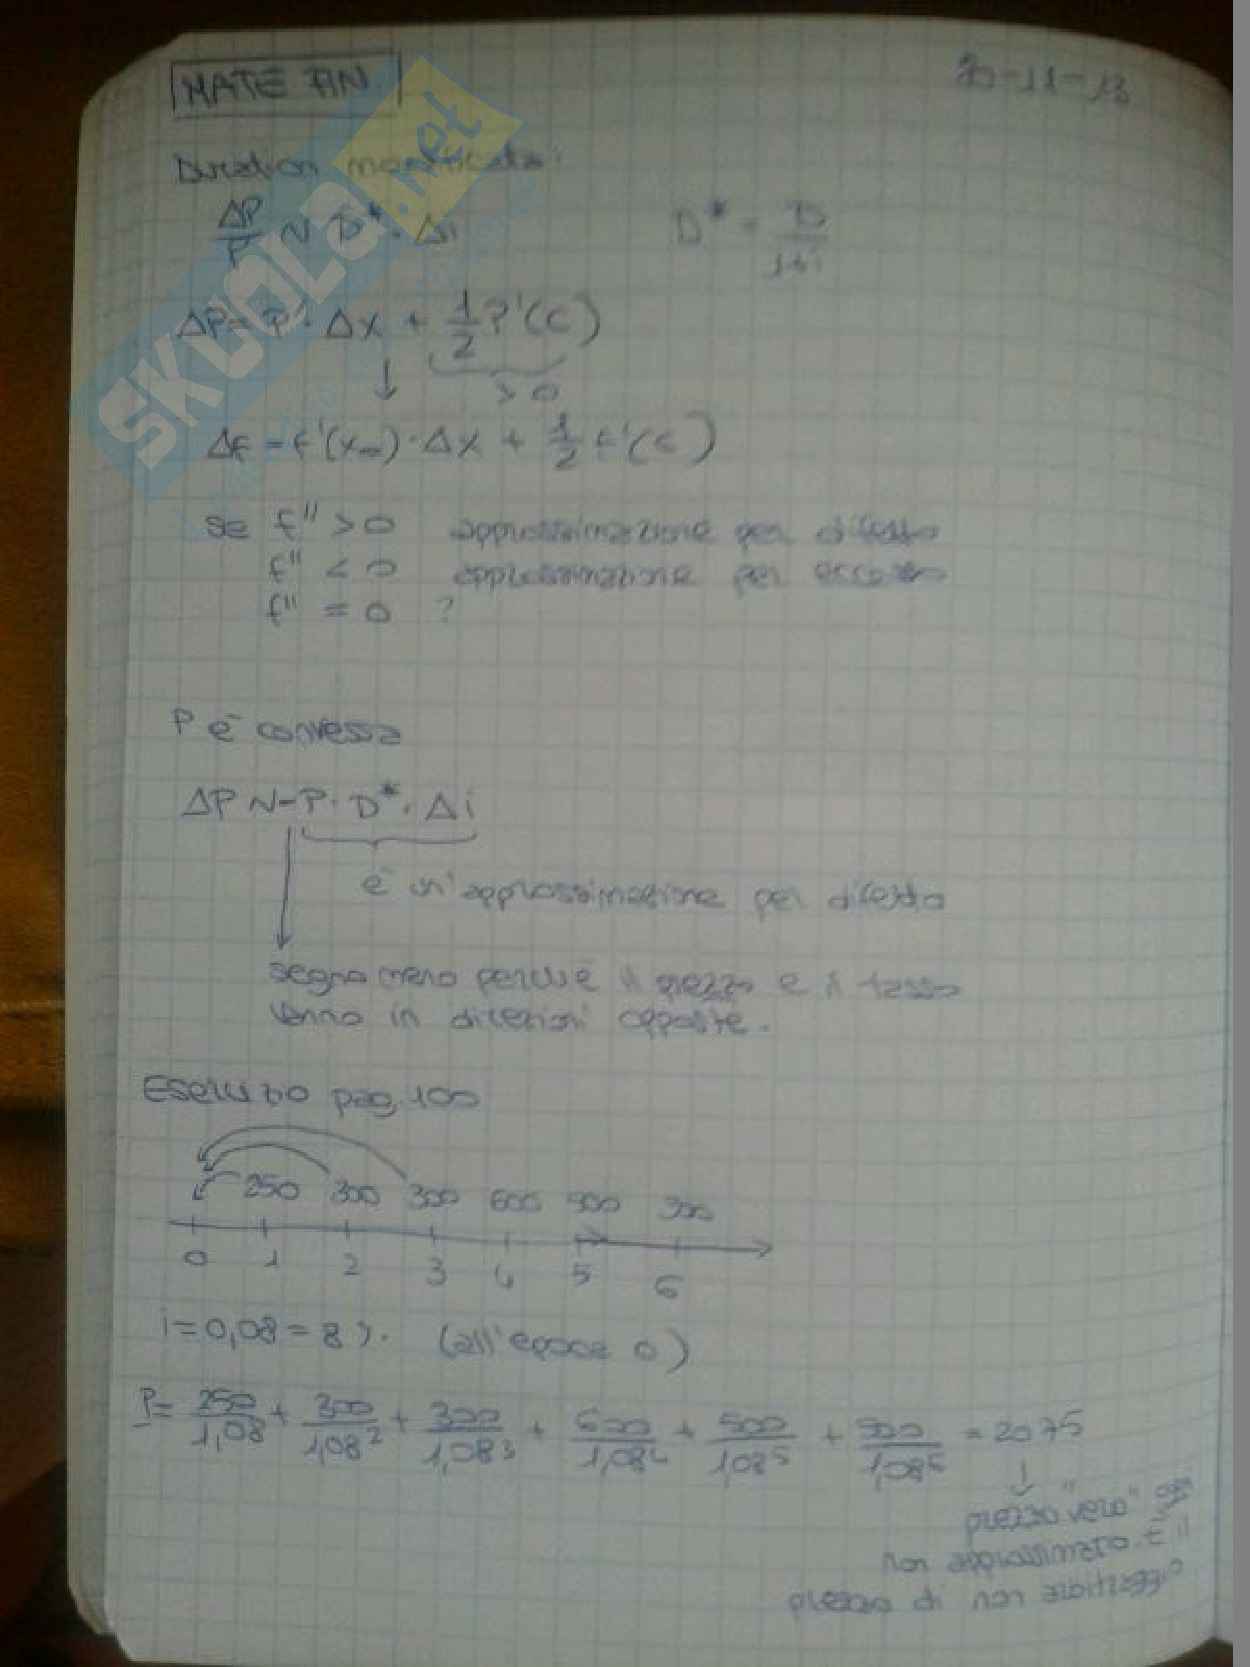 MATE FIN
20-11-13
SKUOLA.net
Duration modificata:
ΔP/P ~ D* · Δi
D* = D/1+i
ΔP = P' · Δx + 1/2 P'(c)
> 0
Δf = f'(x₀) · Δx + 1/2 f'(c)
se f'' > 0 approssimazione per difetto
f'' < 0 approssimazione per eccesso
f'' = 0 ?
P è convessa
ΔP ~ -P · D* · Δi
è un'approssimazione per difetto
segno meno perchè il prezzo e il tasso
vanno in direzioni opposte.
Esercizio pag. 100
250 300 300 600 500 500
0 1 2 3 4 5 6
i = 0,08 = 8% (all'epoca 0)
P = 250/1,08 + 300/1,08² + 300/1,08³ + 600/1,08⁴ + 500/1,08⁵ + 500/1,08⁶ = 2075
prezzo "vero"
non approssimato. È il
prezzo di non arbitraggio